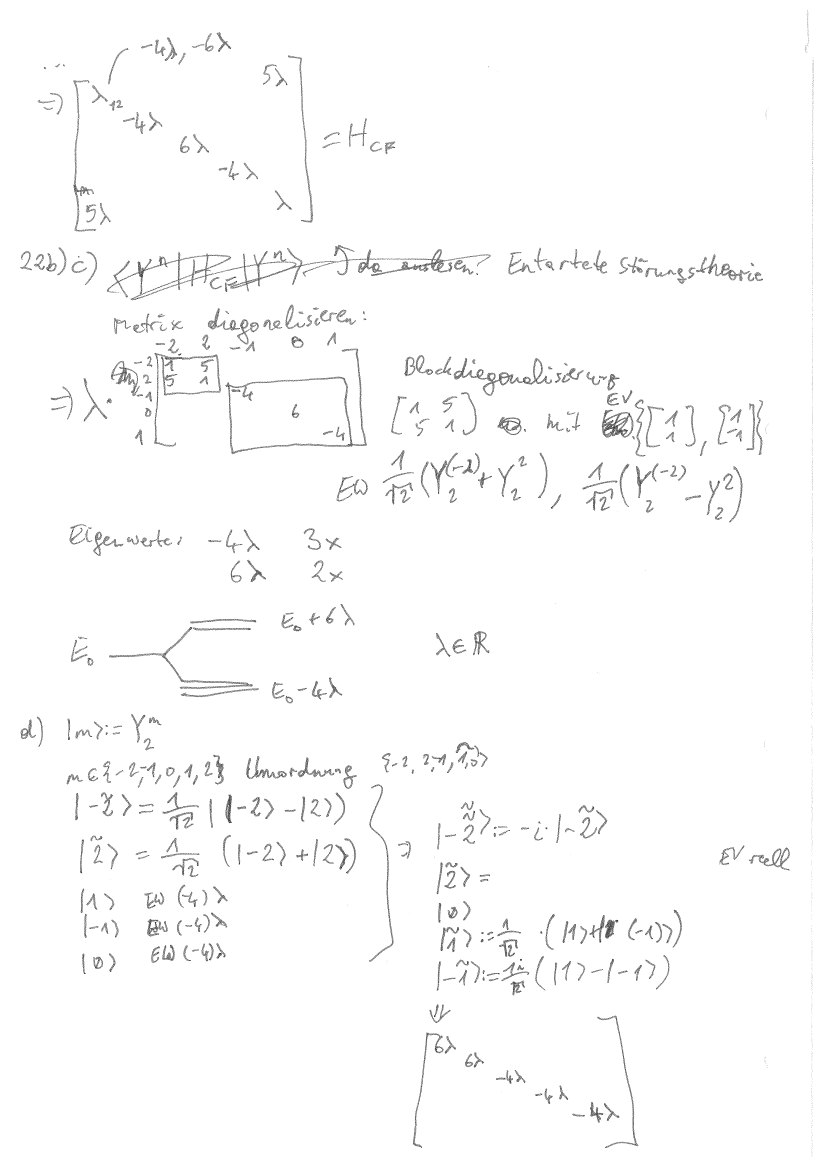 ...
-4λ, -6λ
5λ
=> λ₁₂
-4λ
6λ = H_CF
-4λ
λ
5λ
22b) c) <Yⁿ|H_CF|Yⁿ> da auslesen? Entartete Störungstheorie
Matrix diagonalisieren:
-2 2 -1 0 1
-2 1 5
2 5 1
-1 -4
=> λ· 0 6
1 -4
Blockdiagonalisierung
[1 5; 5 1] mit EV {[1; 1], [1; -1]}
EW 1/√2 (Y₂^(-2) + Y₂²), 1/√2 (Y₂^(-2) - Y₂²)
Eigenwerte: -4λ 3x
6λ 2x
E₀ + 6λ
E₀ λ∈ℝ
E₀ - 4λ
d) |m> := Y₂^m
m ∈ {-2,-1,0,1,2} Umordnung {-2, 2, -1, 1, 0}
|-2̃> = 1/√2 (|-2> - |2>)
|2̃> = 1/√2 (|-2> + |2>)
|1> EW (-4)λ
|-1> EW (-4)λ
|0> EW (-4)λ
=> |-2̃̃> := -i·|-2̃>
EV reell
|2̃> =
|0>
|1̃> := 1/√2 · (|1> + |-1>)
|-1̃> := 1i/√2 (|1> - |-1>)
⇓
6λ
6λ
-4λ
-4λ
-4λ